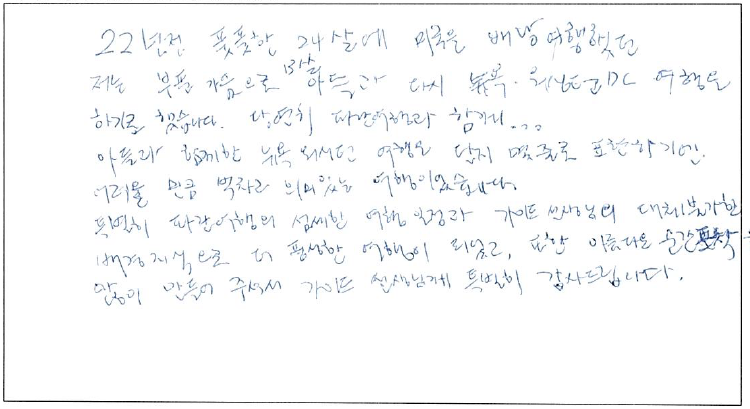 22년전 풋풋한 24살에 미국을 배낭여행했던
저는 부푼 가슴으로 13살 아들과 다시 뉴욕. 워싱턴DC 여행을
하기로 했습니다. 당연히 파란여행과 함께니...
아들과 함께한 뉴욕 워싱턴 여행은 단지 몇줄로 표현하기엔.
어려울 만큼 벅차고 의미있는 여행이었습니다.
특별히 파란여행의 섬세한 여행 일정과 가이드 선생님의 대체불가한
배경지식으로 더 풍성한 여행이 되었고, 또한 아름다운 순간포착
많이 만들어 주셔서 가이드 선생님께 특별히 감사드립니다.